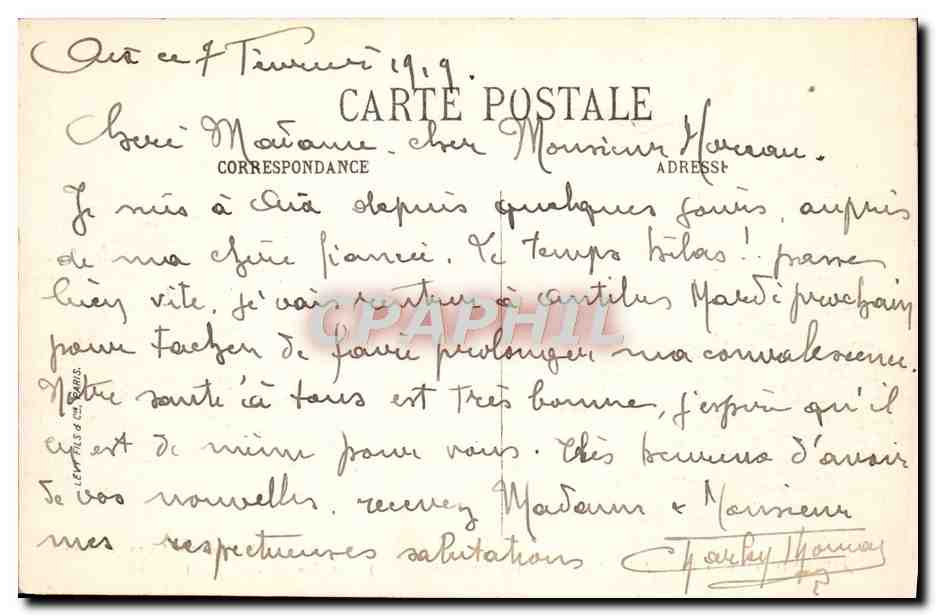 Aix ce 7 Février 1919.
CARTE POSTALE
Chère Madame - cher Monsieur Moreau.
CORRESPONDANCE
ADRESSE
Je suis à Aix depuis quelques jours, auprès
de ma chère fiancée. Le temps hélas! passe
bien vite, je vais rentrer à Antibes Mardi prochain
CPAPHIL
pour tacher de faire prolonger ma convalescence.
Notre santé à tous est très bonne, j'espère qu'il
en est de même pour vous. Très heureux d'avoir
de vos nouvelles, recevez Madame & Monsieur
mes respectueuses salutations
Charly Thomas
LEVY FILS & Cie, PARIS.